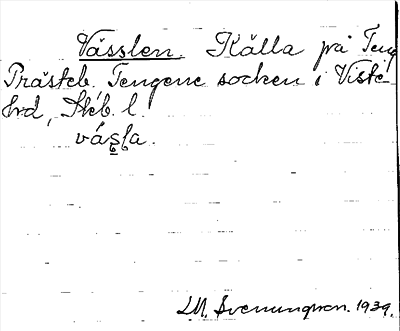 Vässlen. Källa på Teng
Prästeb. Tengene socken i Viste-
hrd, Skb. l.
vás̥l̥a.
LM. Svenungsson. 1939.